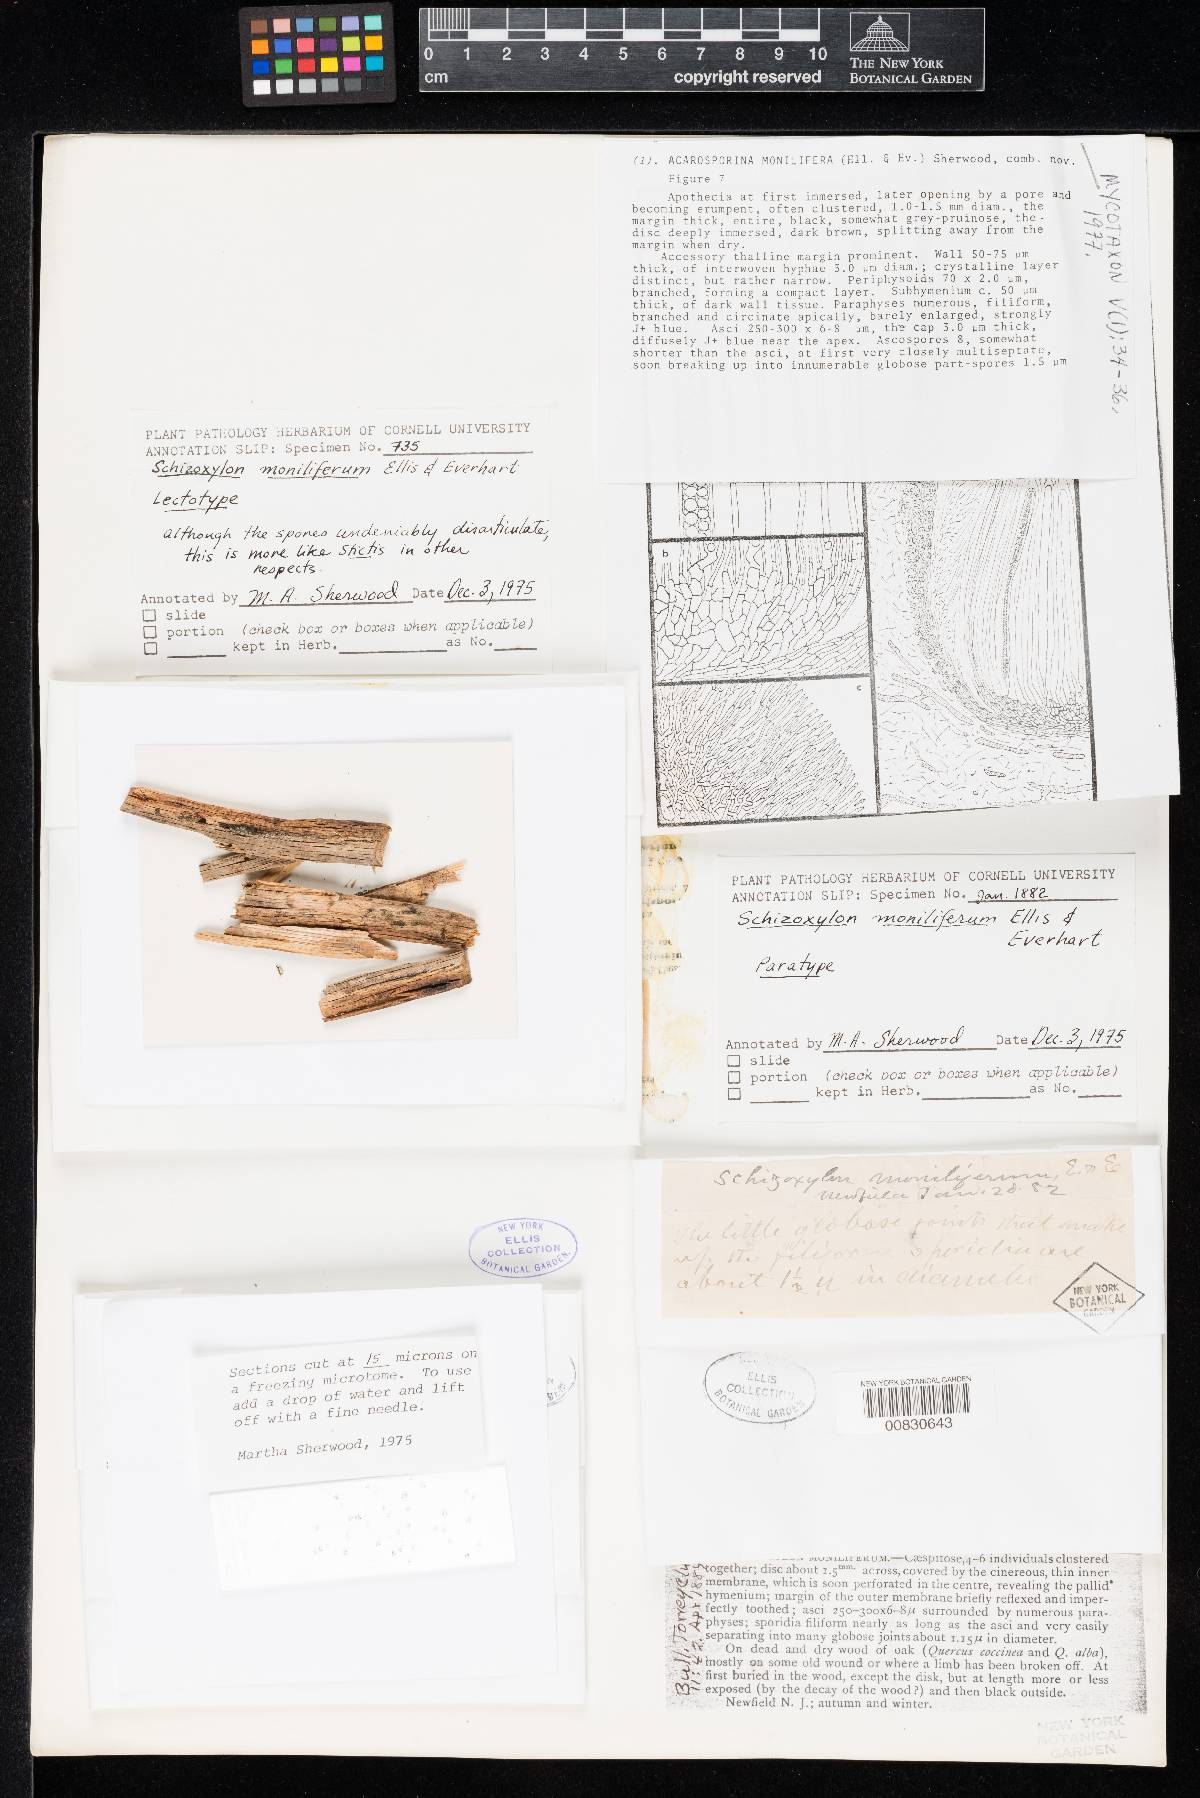 0 1 2 3 4 5 6 7 8 9 10
cm
copyright reserved
THE NEW YORK
BOTANICAL GARDEN
(1). ACAROSPORINA MONILIFERA (Ell. & Ev.) Sherwood, comb. nov.
Figure 7
Apothecia at first immersed, later opening by a pore and
becoming erumpent, often clustered, 1.0-1.5 mm diam., the
margin thick, entire, black, somewhat grey-pruinose, the
disc deeply immersed, dark brown, splitting away from the
margin when dry.
Accessory thalline margin prominent. Wall 50-75 µm
thick, of interwoven hyphae 3.0 µm diam.; crystalline layer
distinct, but rather narrow. Periphysoids 70 x 2.0 µm,
branched, forming a compact layer. Subhymenium c. 50 µm
thick, of dark wall tissue. Paraphyses numerous, filiform,
branched and circinate apically, barely enlarged, strongly
J+ blue. Asci 250-300 x 6-8 µm, the cap 3.0 µm thick,
diffusely J+ blue near the apex. Ascospores 8, somewhat
shorter than the asci, at first very closely multiseptate,
soon breaking up into innumerable globose part-spores 1.5 µm
MYCOTAXON V(1):34-36,
1977.
b
c
PLANT PATHOLOGY HERBARIUM OF CORNELL UNIVERSITY
ANNOTATION SLIP: Specimen No. 735
Schizoxylon moniliferum Ellis & Everhart
Lectotype
although the spores undeniably disarticulate,
this is more like Stictis in other
respects.
Annotated by M. A. Sherwood Date Dec. 3, 1975
slide
portion (check box or boxes when applicable)
kept in Herb. as No.
PLANT PATHOLOGY HERBARIUM OF CORNELL UNIVERSITY
ANNOTATION SLIP: Specimen No. Jan. 1882
Schizoxylon moniliferum Ellis &
Everhart
Paratype
Annotated by M. A. Sherwood Date Dec. 3, 1975
slide
portion (check box or boxes when applicable)
kept in Herb. as No.
Schizoxylon moniliferum, E. & E
Newfield Jan. 28. 82
The little globose joints that make
up the filiform sporidia are
about 1½ µ in diameter
NEW YORK
BOTANICAL
GARDEN
NEW YORK
ELLIS
COLLECTION
BOTANICAL GARDEN.
Sections cut at 15 microns on
a freezing microtome. To use
add a drop of water and lift
off with a fine needle.
Martha Sherwood, 1975
ELLIS
COLLECTION
BOTANICAL GARDEN.
NEW YORK BOTANICAL GARDEN
00830643
MONILIFERUM.—Cæspitose, 4-6 individuals clustered
together; disc about 1.5mm. across, covered by the cinereous, thin inner
membrane, which is soon perforated in the centre, revealing the pallid
hymenium; margin of the outer membrane briefly reflexed and imper-
fectly toothed; asci 250-300x6-8µ surrounded by numerous para-
physes; sporidia filiform nearly as long as the asci and very easily
separating into many globose joints about 1.15µ in diameter.
On dead and dry wood of oak (Quercus coccinea and Q. alba),
mostly on some old wound or where a limb has been broken off. At
first buried in the wood, except the disk, but at length more or less
exposed (by the decay of the wood?) and then black outside.
Newfield N. J.; autumn and winter.
Bull. Torrey Club
11:42. Apr 1884
NEW YORK
BOTANICAL
GARDEN